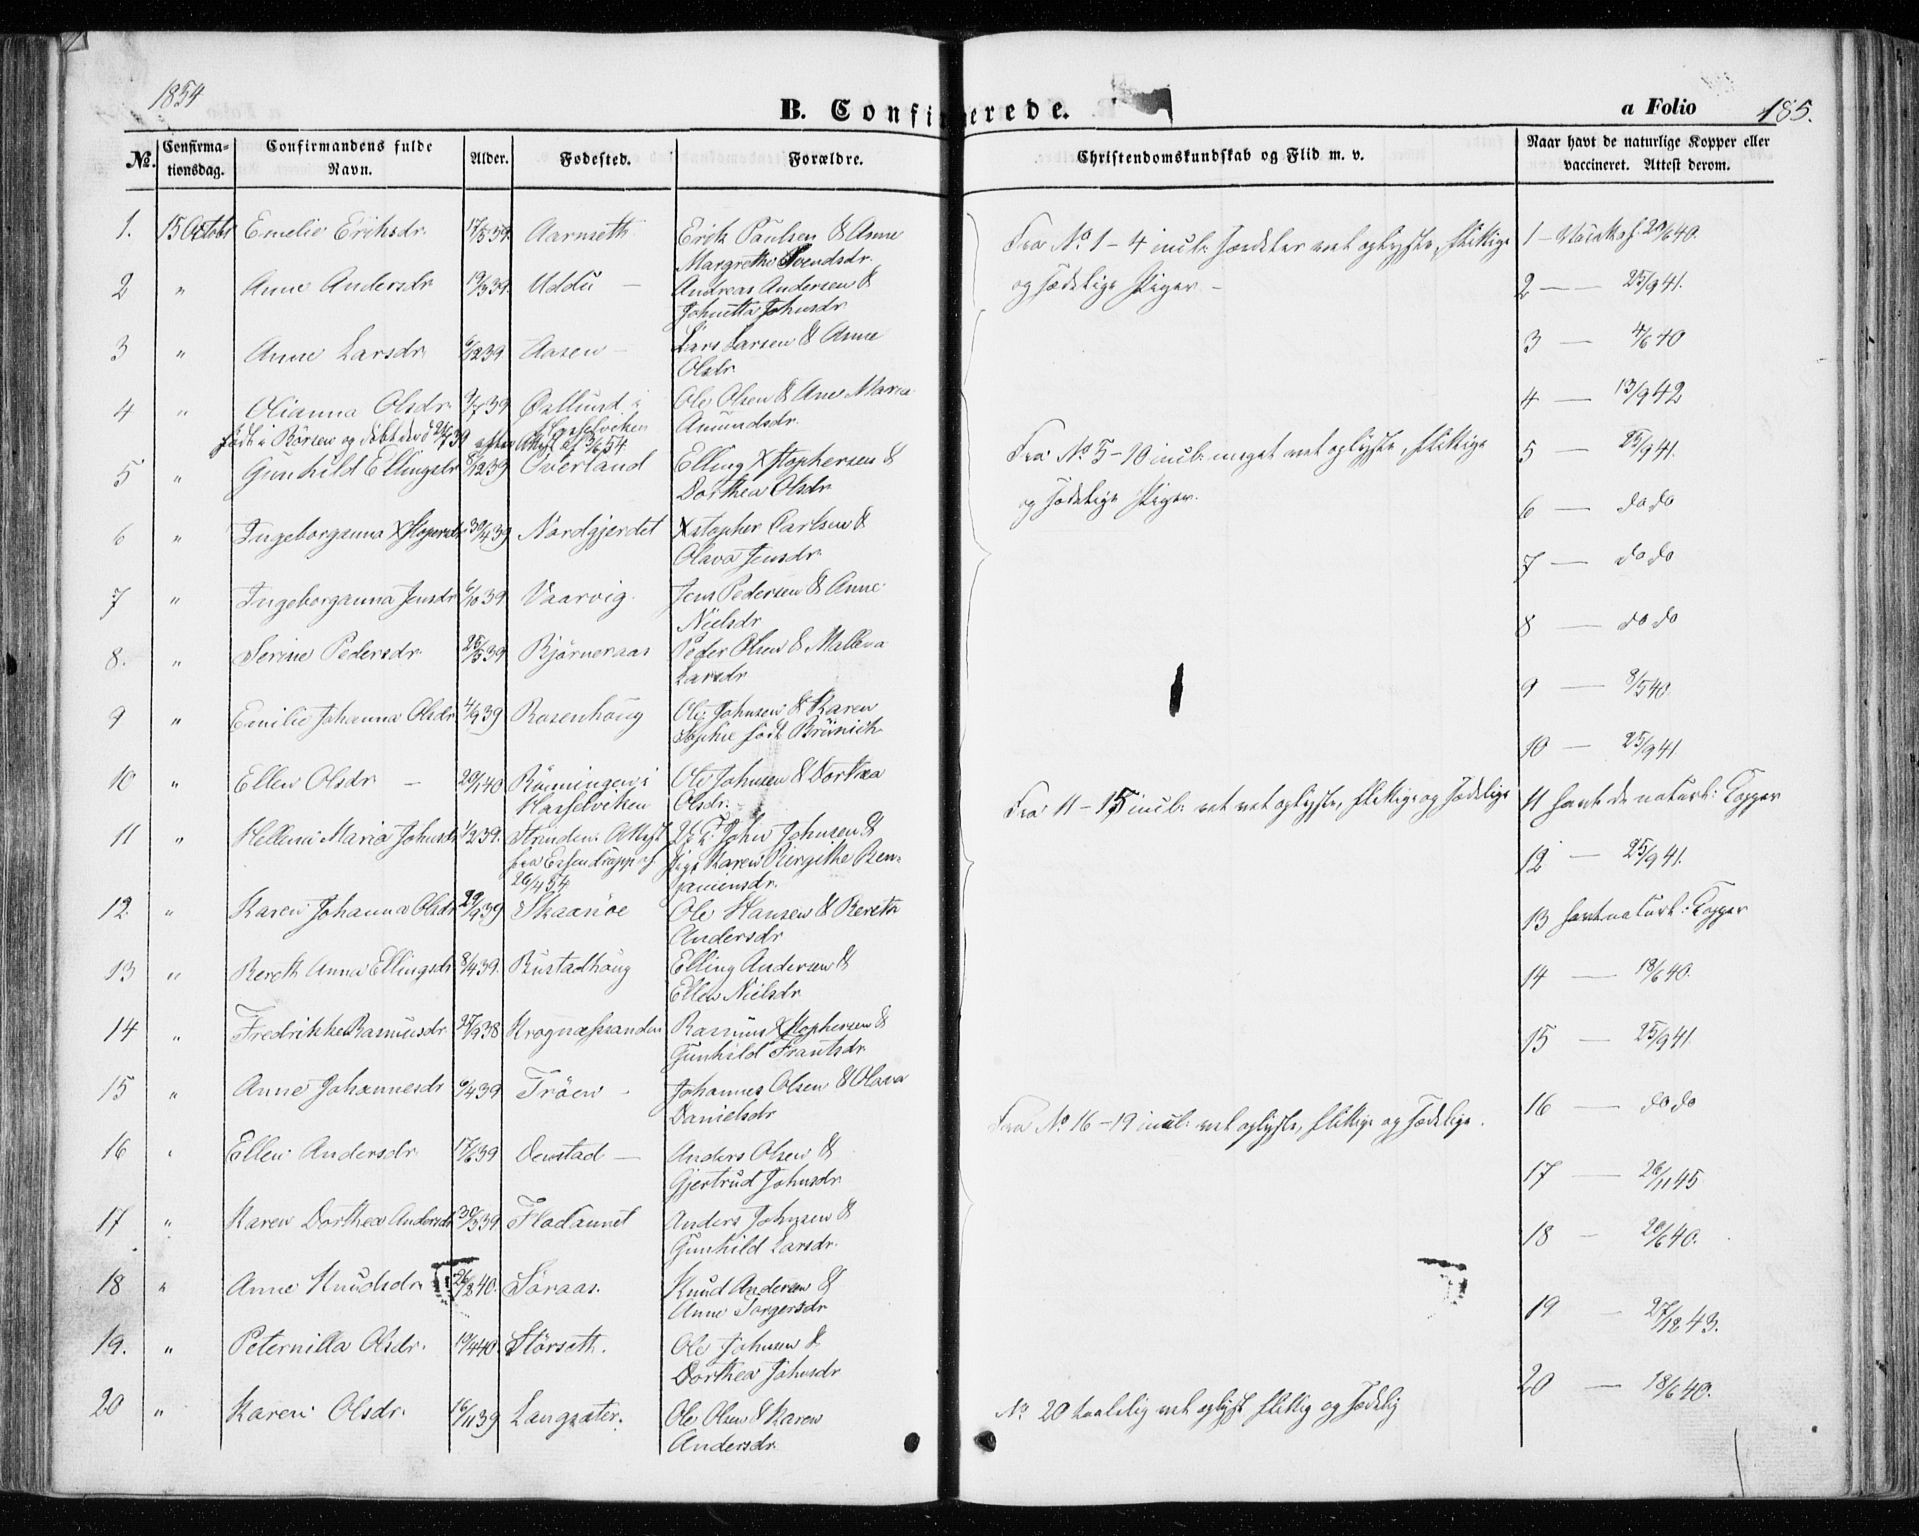 1854
B. Confirmerede.
a Folio 185.
No. Confirma-tionsdag. Confirmandens fulde Navn. Alder. Fødested. Forældre. Christendomskundskab og Flid m. v. Naar havt de naturlige Kopper eller vaccineret. Attest derom.
1. 15 Octobr Emelie Eriksdr. 17/5 39. Aarnseth Erik Paulsen & Anne
Margrethe Svendsdr.
Fra No 1-4 incl: særdeles vel oplyste, flittige
og sædelige Piger -
1 - 20/6 40.
2 " Anne Andersdr 19/3 39. Uddu - Andreas Andersen &
Johnetta Johnsdr
2 — — 25/9 41.
3 " Anne Larsdr. 6/12 39 Aasen - Lars Larsen & Anne
Olsdr.
3 — 4/6 40
4 " Olianna Olsdr. 9/7 39 Øxllund i Ole Olsen & Ane Maria
Hasselviken Amundsdr.
født i Börsen og döbt der d 21/7 39 efter Attest af 3/6 54
4 — 13/9 42
5 " Gunhild Ellingsdr 8/12 39 Overland Elling Xstophersen &
Dorthea Olsdr
Fra No 5-10 incl: meget vel oplyste, flittige
og sædelige Piger.
5 — 25/9 41.
6 " Ingeborganna Xstophersdr 30/4 39 Nordgjerdet Xstopher Carlsen &
Olava Jensdr.
6 — do do
7 " Ingeborganna Jensdr 6/10 39 Vaarvig. Jens Pedersen & Anne
Nielsdr
7 — do do
8. " Serine Pedersdr. 25/5 39 Björneraas Peder Olsen & Mallena
Larsdr
8 — do do
9 " Emilie Johanna Olsdr 4/9 39 Rosenhoug Ole Johnsen & Karen
Sophie født Brünich
9 — 8/5 40.
10 " Ellen Olsdr — 20/1 40 Rönningen i Ole Johnsen & Dorthea
Hasselviken Olsdr.
10 — 25/9 41
11 " Hellena Maria Johnsdr 1/2 39. Strinden. Attest John Johnsen &
fra Essendropp af Pige Karen Birgithe Ben-
26/4 54 jamensdr.
Fra 11-15 incl: vel vel oplyste, flittige og sædelige
11 havt de naturl: Copper
12. " Karen Johanna Olsdr 29/9 39 Skaanöe Ole Hansen & Bereth
Andersdr
12 — 25/9 41.
13 " Bereth Anna Ellingsdr 8/4 39. Rustadhoug Elling Andersen &
Ellen Nielsdr
13 havt naturl: Copper
14 " Fredrikke Rasmusdr 27/9 38 Krognæssanden Rasmus Xstophersen &
Gunhild Frantsdr.
14 — 18/6 40.
15 " Anne Johannesdr 6/4 39 Tröen - Johannes Olsen & Olava
Danielsdr
15 — 25/9 41.
16 " Ellen Andersdr. 17/6 39 Denstad — Anders Olsen &
Gjertrud Johnsdr
Fra No 16-19 incl: vel oplyste, flittige og sædelige.
16 — do do
17 " Karen Dorthea Andersdr 30/5 39 Fladannet Anders Johnsen &
Gunhild Larsdr.
17 — 26/11 45
18 " Anne Knudsdr. 26/2 40. Söraas. Knud Andersen &
Anne Torgersdr
18 - 20/6 40.
19. " Peternilla Olsdr. 19/4 40. Störseth. Ole Johnsen &
Dorthea Johnsdr
19 — 27/12 43.
20 " Karen Olsdr. 16/11 39 Langsæter. Ole Olsen & Karen
Andersdr.
No 20 taalelig vel oplyst flittig og sædelig
20 — 18/6 40.